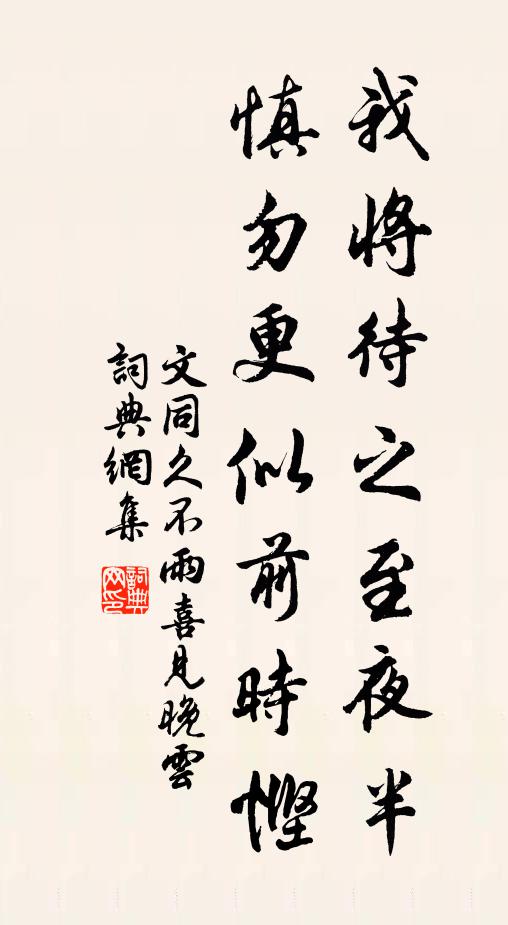 我將待之至夜半
慎勿更似前時慳
文同久不雨喜見晚雲
詞典網集
詞典網印